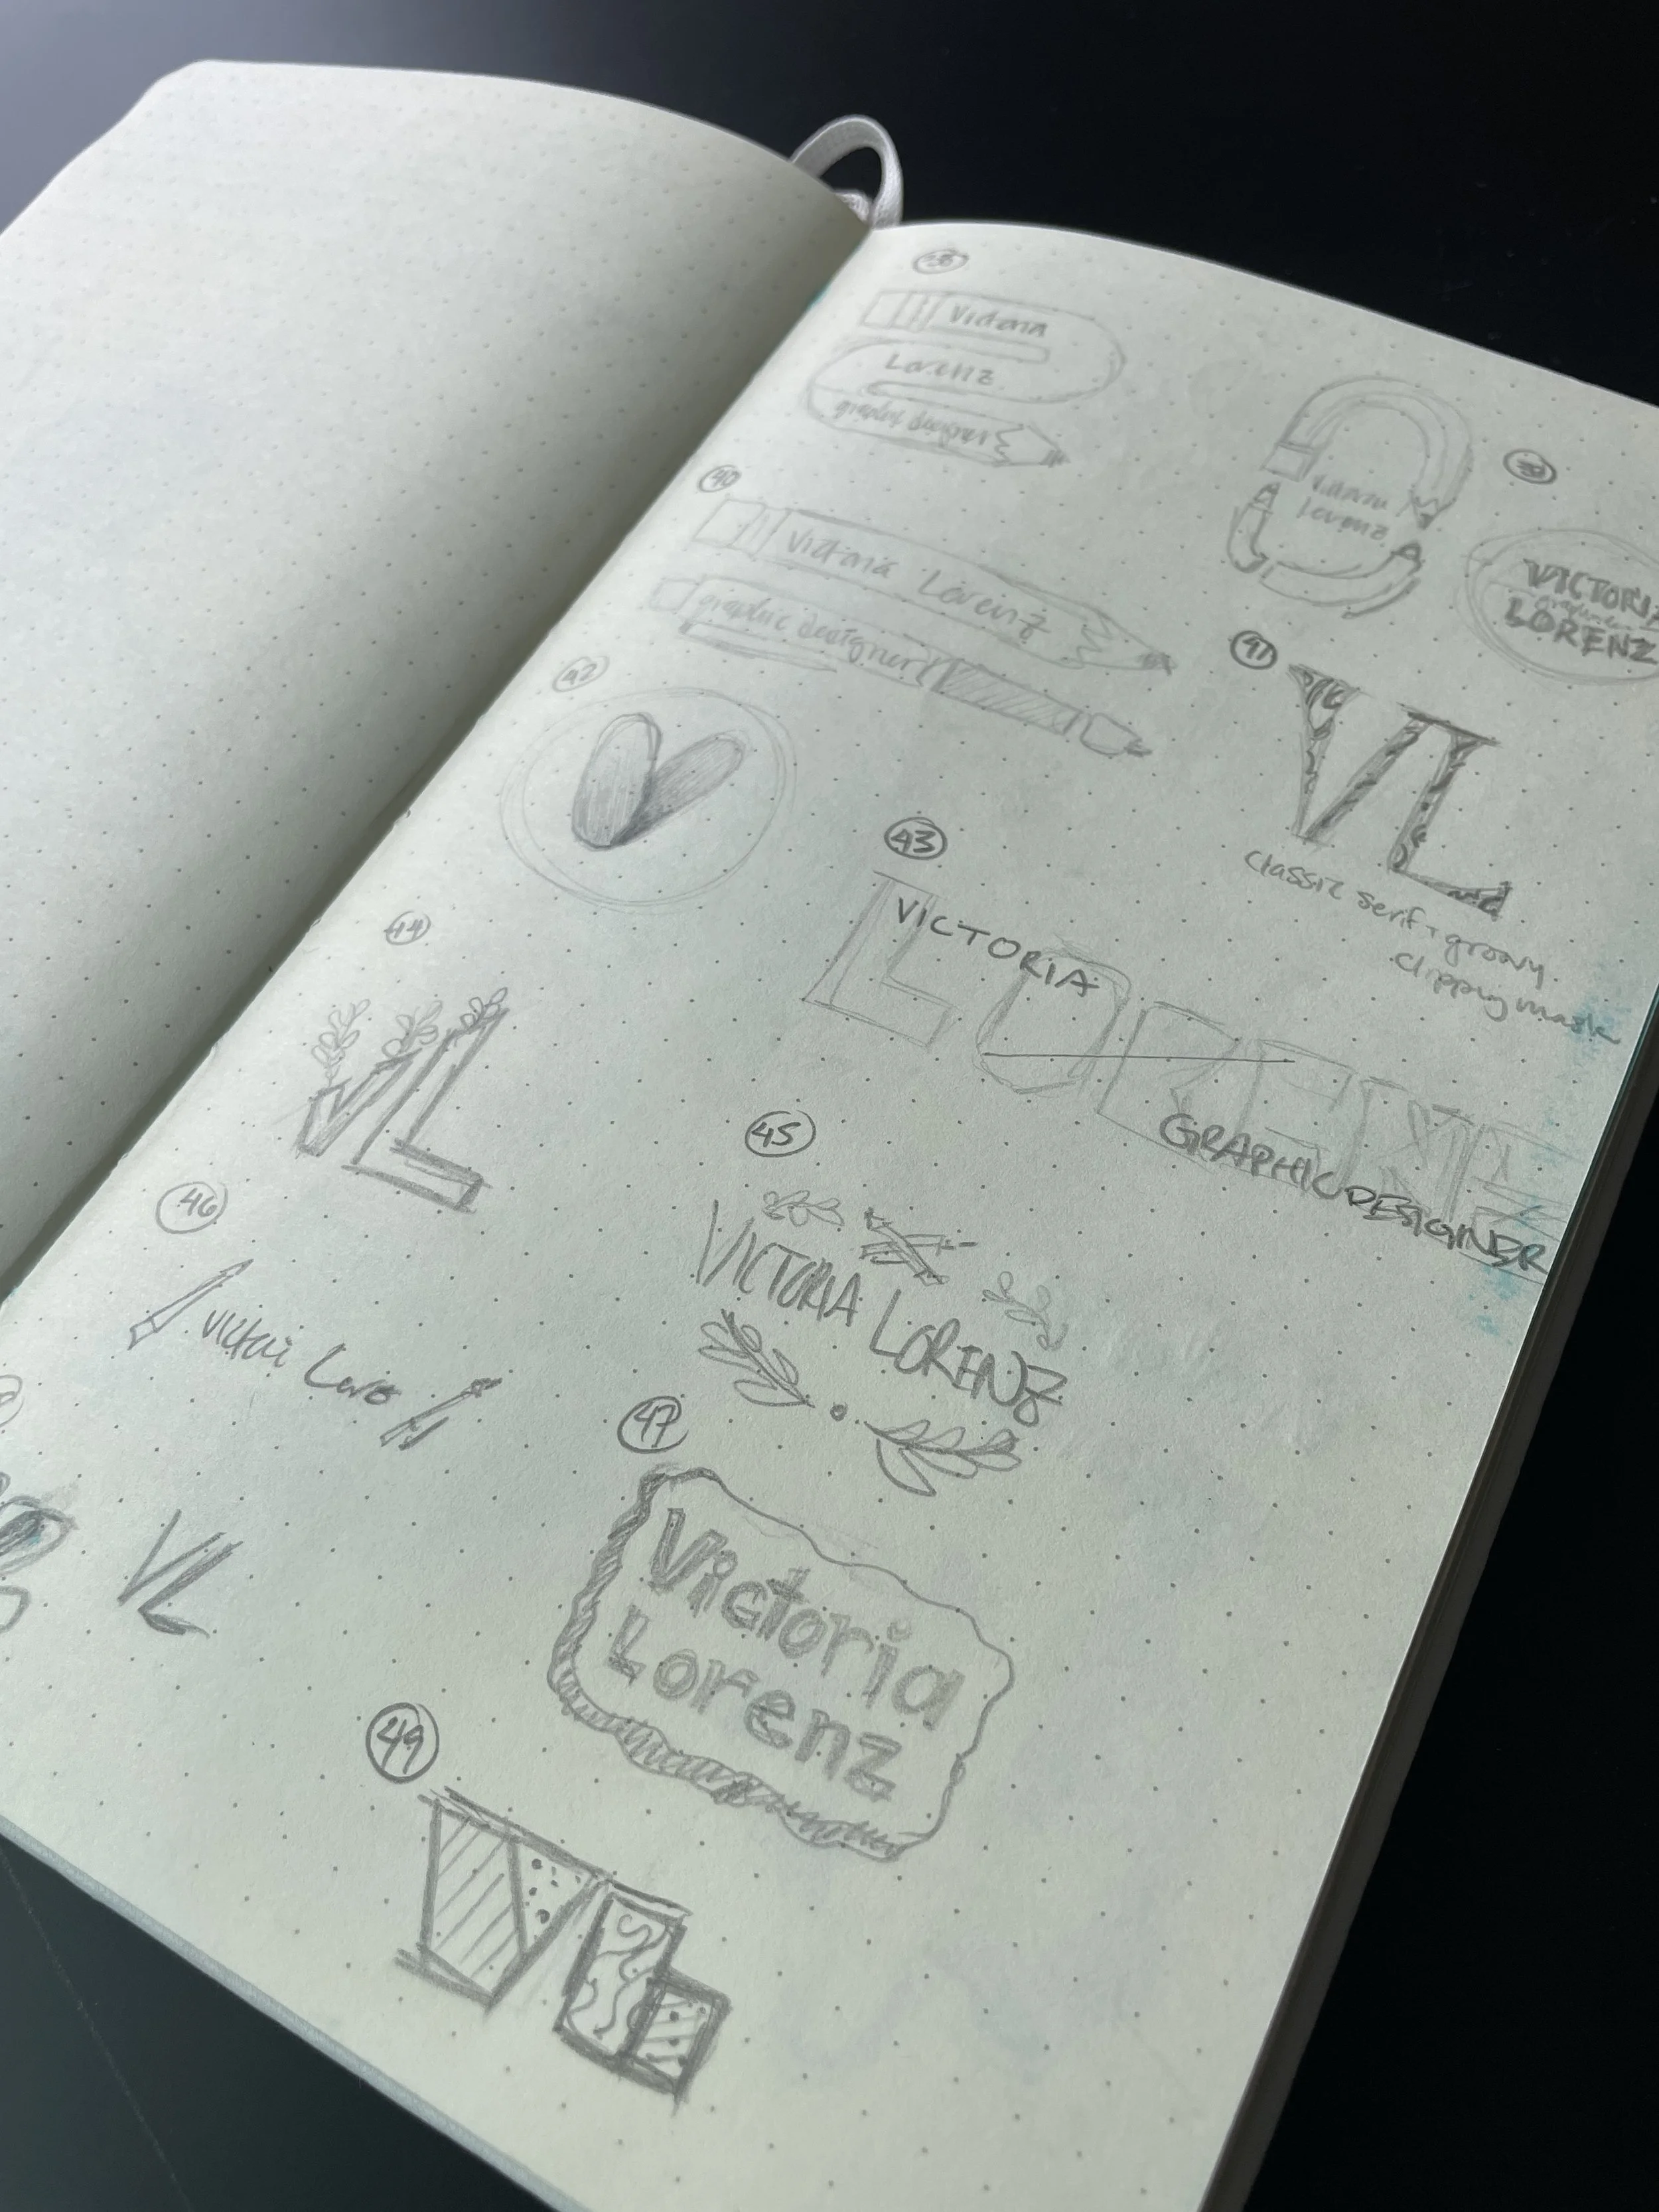 38
Victoria
Lorenz
graphic designer
Victoria
Lorenz
39
VICTORIA
LORENZ
40
Victoria Lorenz
graphic designer
41
VL
classic serif + groovy
clipping mask
42
V
43
VICTORIA
LORENZ
GRAPHIC DESIGNER
44
VL
45
VICTORIA LORENZ
46
VL
47
Victoria
Lorenz
49
VL